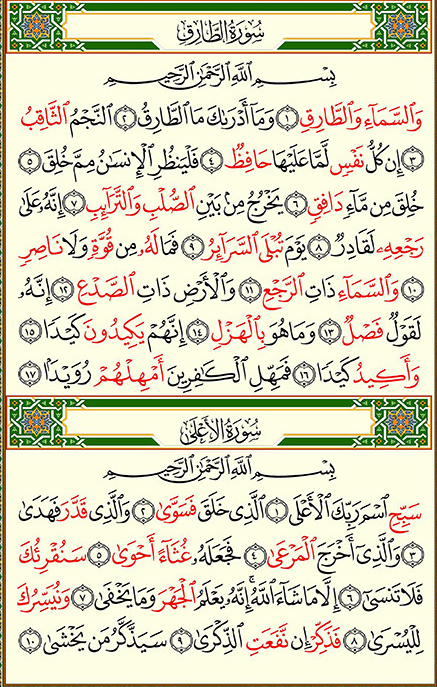 سُورَةُ الطَّارِقِ
بِسْمِ اللَّهِ الرَّحْمَٰنِ الرَّحِيمِ
وَالسَّمَاءِ وَالطَّارِقِ ١ وَمَا أَدْرَىٰكَ مَا الطَّارِقُ ٢ النَّجْمُ الثَّاقِبُ
٣ إِن كُلُّ نَفْسٍ لَّمَّا عَلَيْهَا حَافِظٌ ٤ فَلْيَنظُرِ الْإِنسَٰنُ مِمَّ خُلِقَ ٥
خُلِقَ مِن مَّاءٍ دَافِقٍ ٦ يَخْرُجُ مِنۢ بَيْنِ الصُّلْبِ وَالتَّرَائِبِ ٧ إِنَّهُۥ عَلَىٰ
رَجْعِهِۦ لَقَادِرٌ ٨ يَوْمَ تُبْلَى السَّرَائِرُ ٩ فَمَا لَهُۥ مِن قُوَّةٍ وَلَا نَاصِرٍ
١٠ وَالسَّمَاءِ ذَاتِ الرَّجْعِ ١١ وَالْأَرْضِ ذَاتِ الصَّدْعِ ١٢ إِنَّهُۥ
لَقَوْلٌ فَصْلٌ ١٣ وَمَا هُوَ بِالْهَزْلِ ١٤ إِنَّهُمْ يَكِيدُونَ كَيْدًا ١٥
وَأَكِيدُ كَيْدًا ١٦ فَمَهِّلِ الْكَٰفِرِينَ أَمْهِلْهُمْ رُوَيْدًۢا ١٧
سُورَةُ الْأَعْلَىٰ
بِسْمِ اللَّهِ الرَّحْمَٰنِ الرَّحِيمِ
سَبِّحِ اسْمَ رَبِّكَ الْأَعْلَى ١ الَّذِي خَلَقَ فَسَوَّىٰ ٢ وَالَّذِي قَدَّرَ فَهَدَىٰ
٣ وَالَّذِي أَخْرَجَ الْمَرْعَىٰ ٤ فَجَعَلَهُۥ غُثَاءً أَحْوَىٰ ٥ سَنُقْرِئُكَ
فَلَا تَنسَىٰ ٦ إِلَّا مَا شَاءَ اللَّهُ ۚ إِنَّهُۥ يَعْلَمُ الْجَهْرَ وَمَا يَخْفَىٰ ٧ وَنُيَسِّرُكَ
لِلْيُسْرَىٰ ٨ فَذَكِّرْ إِن نَّفَعَتِ الذِّكْرَىٰ ٩ سَيَذَّكَّرُ مَن يَخْشَىٰ ١٠